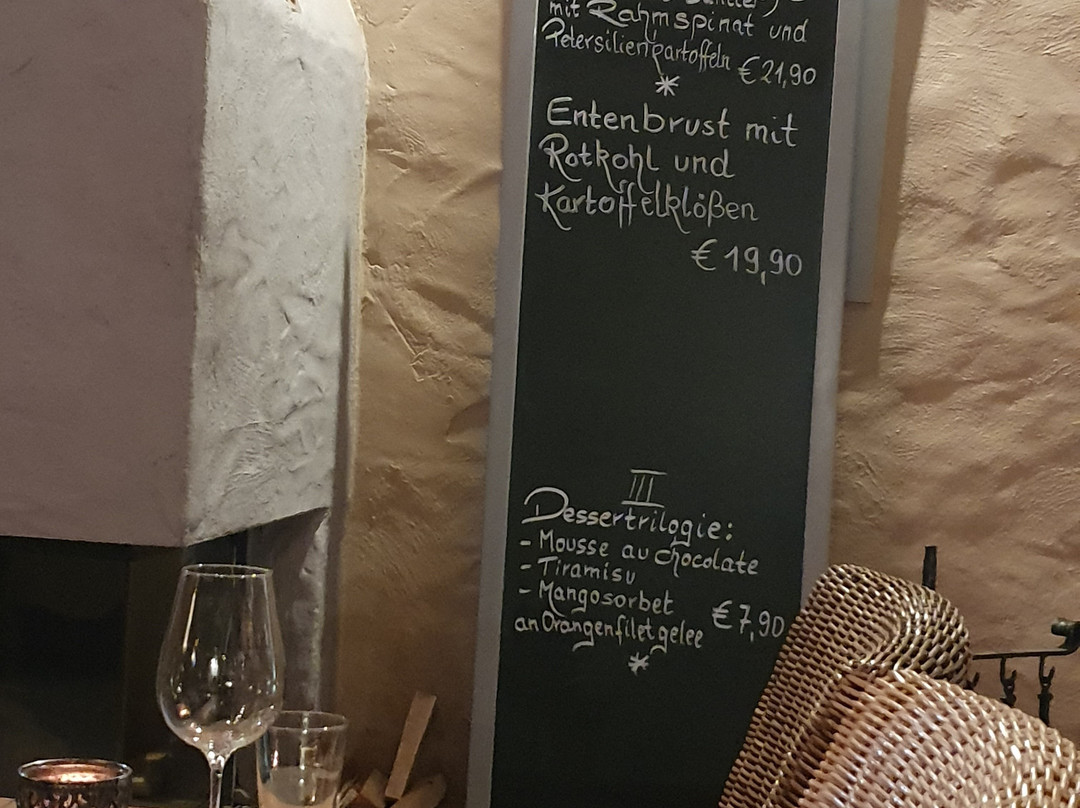 mit Rahmspinat und
Petersilienkartoffeln €21,90
*
Entenbrust mit
Rotkohl und
Kartoffelklößen
€ 19,90
III
Dessertrilogie:
- Mousse au chocolate
- Tiramisu
- Mangosorbet
an Orangenfiletgelee €7,90
*